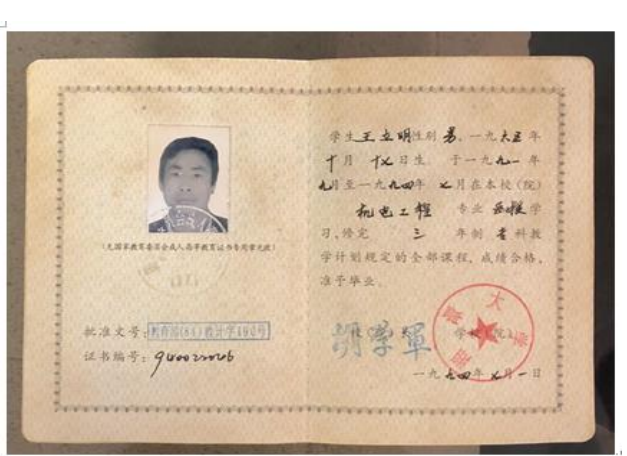 (无国家教育委员会成人高等教育证书专用章无效)
批准文号:教育部(84)教计字190号
证书编号:
学生王立明性别男,一九六五年
十月 十七日生。于一九九一年
九月至一九九四年 七月在本校(院)
机电工程 专业 学
习,修完 三 年制 专科教
学计划规定的全部课程,成绩合格,
准予毕业。
胡学军
一九九四年 七月一日